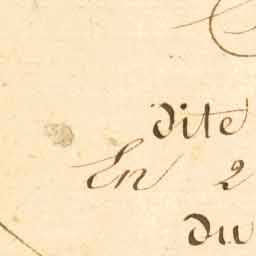 dite
En 2
du